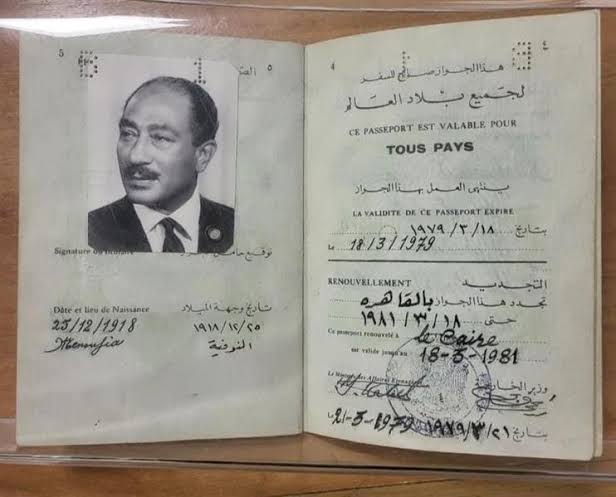 5
٥
الصو
Signature du titulaire
توقيع حامل
Dâte et lieu de Naissance
تاريخ وجهة الميلاد
25/12/1918
١٩١٨/١٢/٢٥
Menoufia
المنوفية
4
٤
هذا الجواز صالح للسفر
لجميع بلاد العالم
CE PASSEPORT EST VALABLE POUR
TOUS PAYS
ينتهى العمل بهذا الجواز
LA VALIDITE DE CE PASSEPORT EXPIRE
بتاريخ ١٩٧٩/٣/١٨
Le 18/3/1979
RENOUVELLEMENT
التجديد
تجدد هذا الجواز بالقاهره
حتى ١٩٨١/٣/١٨
Ce passeport renouvelé à le Caire
est valide jusqu'au 18-3-1981
Le Ministre des Affaires Etrangères
وزير الخارجية
Le 21-3-1979
بتاريخ ١٩٧٩/٣/٢١